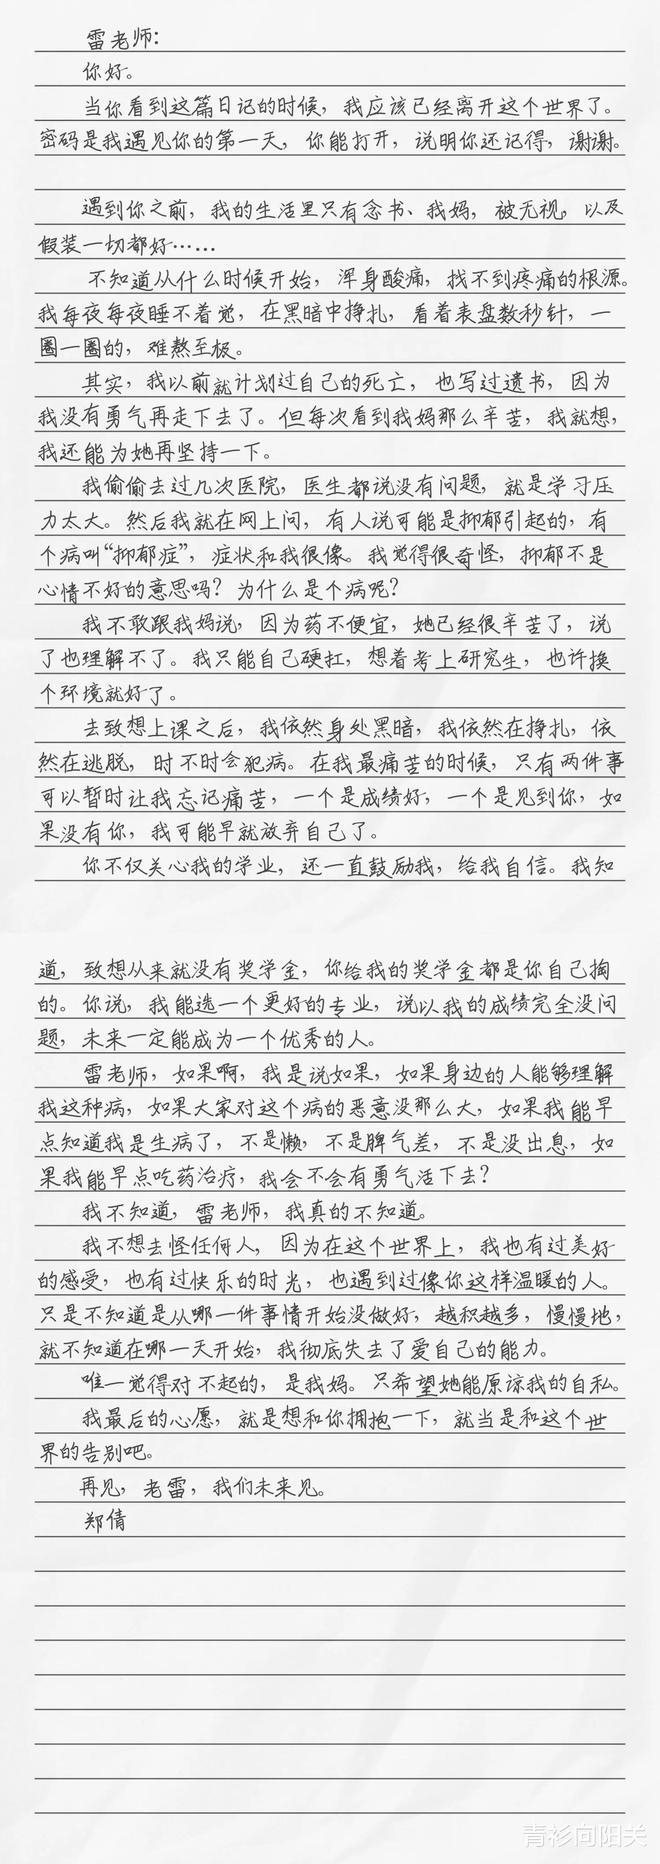 雷老师：
你好。
当你看到这篇日记的时候，我应该已经离开这个世界了。
密码是我遇见你的第一天，你能打开，说明你还记得，谢谢。
遇到你之前，我的生活里只有念书、我妈，被无视，以及
假装一切都好……
不知道从什么时候开始，浑身酸痛，找不到疼痛的根源。
我每夜每夜睡不着觉，在黑暗中挣扎，看着表盘数秒针，一
圈一圈的，难熬至极。
其实，我以前就计划过自己的死亡，也写过遗书，因为
我没有勇气再走下去了。但每次看到我妈那么辛苦，我就想，
我还能为她再坚持一下。
我偷偷去过几次医院，医生都说没有问题，就是学习压
力太大。然后我就在网上问，有人说可能是抑郁引起的，有
个病叫“抑郁症”，症状和我很像。我觉得很奇怪，抑郁不是
心情不好的意思吗？为什么是个病呢？
我不敢跟我妈说，因为药不便宜，她已经很辛苦了，说
了也理解不了。我只能自己硬扛，想着考上研究生，也许换
个环境就好了。
去致想上课之后，我依然身处黑暗，我依然在挣扎，依
然在逃脱，时不时会犯病。在我最痛苦的时候，只有两件事
可以暂时让我忘记痛苦，一个是成绩好，一个是见到你，如
果没有你，我可能早就放弃自己了。
你不仅关心我的学业，还一直鼓励我，给我自信。我知
道，致想从来就没有奖学金，你给我的奖学金都是你自己掏
的。你说，我能选一个更好的专业，说以我的成绩完全没问
题，未来一定能成为一个优秀的人。
雷老师，如果啊，我是说如果，如果身边的人能够理解
我这种病，如果大家对这个病的恶意没那么大，如果我能早
点知道我是生病了，不是懒，不是脾气差，不是没出息，如
果我能早点吃药治疗，我会不会有勇气活下去？
我不知道，雷老师，我真的不知道。
我不想去怪任何人，因为在这个世界上，我也有过美好
的感受，也有过快乐的时光，也遇到过像你这样温暖的人。
只是不知道是从哪一件事情开始没做好，越积越多，慢慢地，
就不知道在哪一天开始，我彻底失去了爱自己的能力。
唯一觉得对不起的，是我妈。只希望她能原谅我的自私。
我最后的心愿，就是想和你拥抱一下，就当是和这个世
界的告别吧。
再见，老雷，我们未来见。
郑倩
青衫向阳关